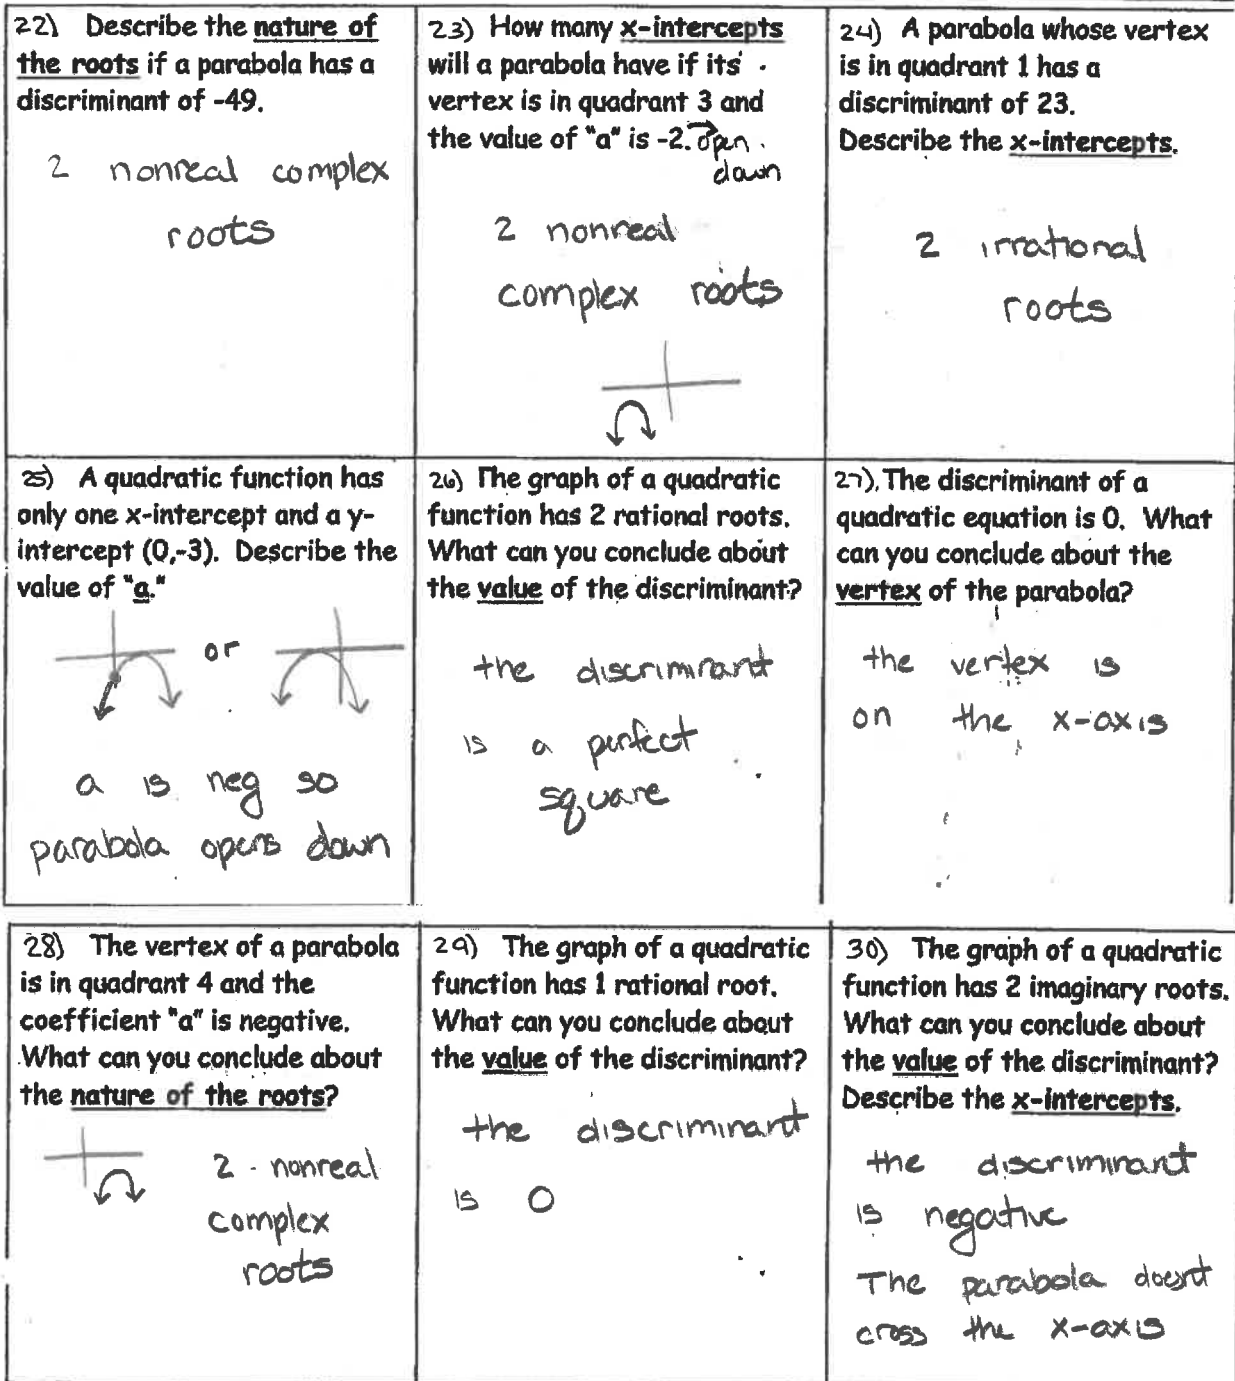 22) Describe the nature of
the roots if a parabola has a
discriminant of -49.
2 nonreal complex
roots
23) How many x-intercepts
will a parabola have if its
vertex is in quadrant 3 and
the value of "a" is -2. open
down
2 nonreal
complex roots
24) A parabola whose vertex
is in quadrant 1 has a
discriminant of 23.
Describe the x-intercepts.
2 irrational
roots
25) A quadratic function has
only one x-intercept and a y-
intercept (0,-3). Describe the
value of "a."
or
a is neg so
parabola opens down
26) The graph of a quadratic
function has 2 rational roots.
What can you conclude about
the value of the discriminant?
the discriminant
is a perfect
square
27). The discriminant of a
quadratic equation is 0. What
can you conclude about the
vertex of the parabola?
the vertex is
on the x-axis
28) The vertex of a parabola
is in quadrant 4 and the
coefficient "a" is negative.
What can you conclude about
the nature of the roots?
2 - nonreal
complex
roots
29) The graph of a quadratic
function has 1 rational root.
What can you conclude about
the value of the discriminant?
the discriminant
is 0
30) The graph of a quadratic
function has 2 imaginary roots.
What can you conclude about
the value of the discriminant?
Describe the x-intercepts.
the discriminant
is negative
The parabola doesnt
cross the x-axis